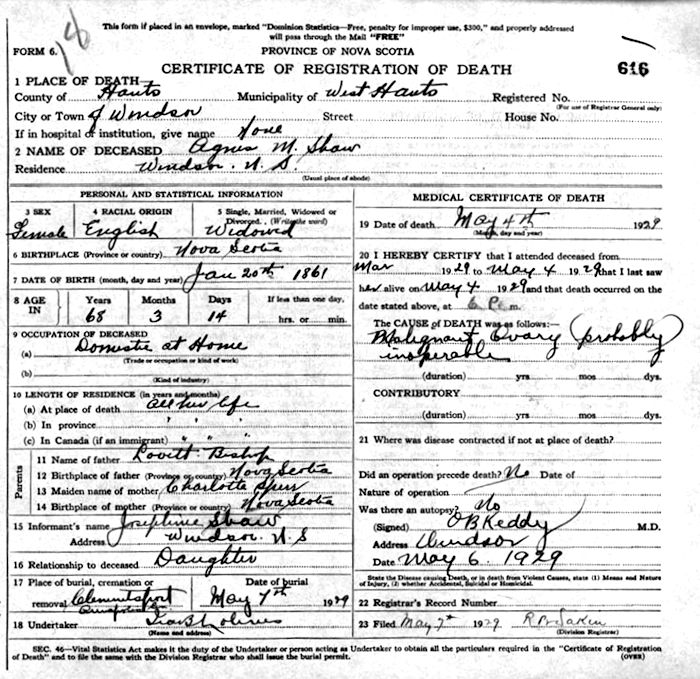 This form if placed in an envelope, marked "Dominion Statistics—Free, penalty for improper use, $300," and properly addressed
will pass through the Mail "FREE"
18
FORM 6. PROVINCE OF NOVA SCOTIA
CERTIFICATE OF REGISTRATION OF DEATH 616
1 PLACE OF DEATH
County of Hants Municipality of West Hants Registered No.
(For use of Registrar General only)
City or Town of Windsor Street House No.
If in hospital or institution, give name None
2 NAME OF DECEASED Agnes M. Shaw
Residence Windsor. N. S.
(Usual place of abode)
PERSONAL AND STATISTICAL INFORMATION
3 SEX 4 RACIAL ORIGIN 5 Single, Married, Widowed or
Divorced. (Write the word)
Female English Widowed
6 BIRTHPLACE (Province or country) Nova Scotia
7 DATE OF BIRTH (month, day and year) Jan 20th 1861
8 AGE IN Years Months Days If less than one day,
68 3 14 hrs. or min.
9 OCCUPATION OF DECEASED
(a) Domestic at Home
(Trade or occupation or kind of work)
(b)
(Kind of industry)
10 LENGTH OF RESIDENCE (in years and months)
(a) At place of death all her life
(b) In province " " "
(c) In Canada (if an immigrant) " " "
Parents
11 Name of father Lovitt Bishop
12 Birthplace of father (Province or country) Nova Scotia
13 Maiden name of mother Charlotte Spurr
14 Birthplace of mother (Province or country) Nova Scotia
15 Informant's name Josephine Shaw
Address Windsor. N. S
16 Relationship to deceased Daughter
17 Place of burial, cremation or Date of burial
removal Clementsport May 7th 1929
18 Undertaker
(Name and address)
MEDICAL CERTIFICATE OF DEATH
19 Date of death May 4th 1929
(Month, day and year)
20 I HEREBY CERTIFY that I attended deceased from
Mar 1929 to May 4 1929 that I last saw
her alive on May 4 1929 and that death occurred on the
date stated above, at 6 P. m.
The CAUSE of DEATH was as follows:—
Malignant Ovary (probably
inoperable
(duration) yrs mos dys.
CONTRIBUTORY
(duration) yrs mos dys.
21 Where was disease contracted if not at place of death?
Did an operation precede death? No Date of
Nature of operation
Was there an autopsy? No
(Signed) O B Keddy M.D.
Address Windsor
Date May 6. 1929
State the Disease causing Death, or in death from Violent Causes, state (1) Means and Nature
of Injury, (2) whether Accidental, Suicidal or Homicidal.
22 Registrar's Record Number
23 Filed May 7th 1929
(Division Registrar)
SEC. 46—Vital Statistics Act makes it the duty of the Undertaker or person acting as Undertaker to obtain all the particulars required in the "Certificate of Registration
of Death" and to file the same with the Division Registrar who shall issue the burial permit. (OVER)